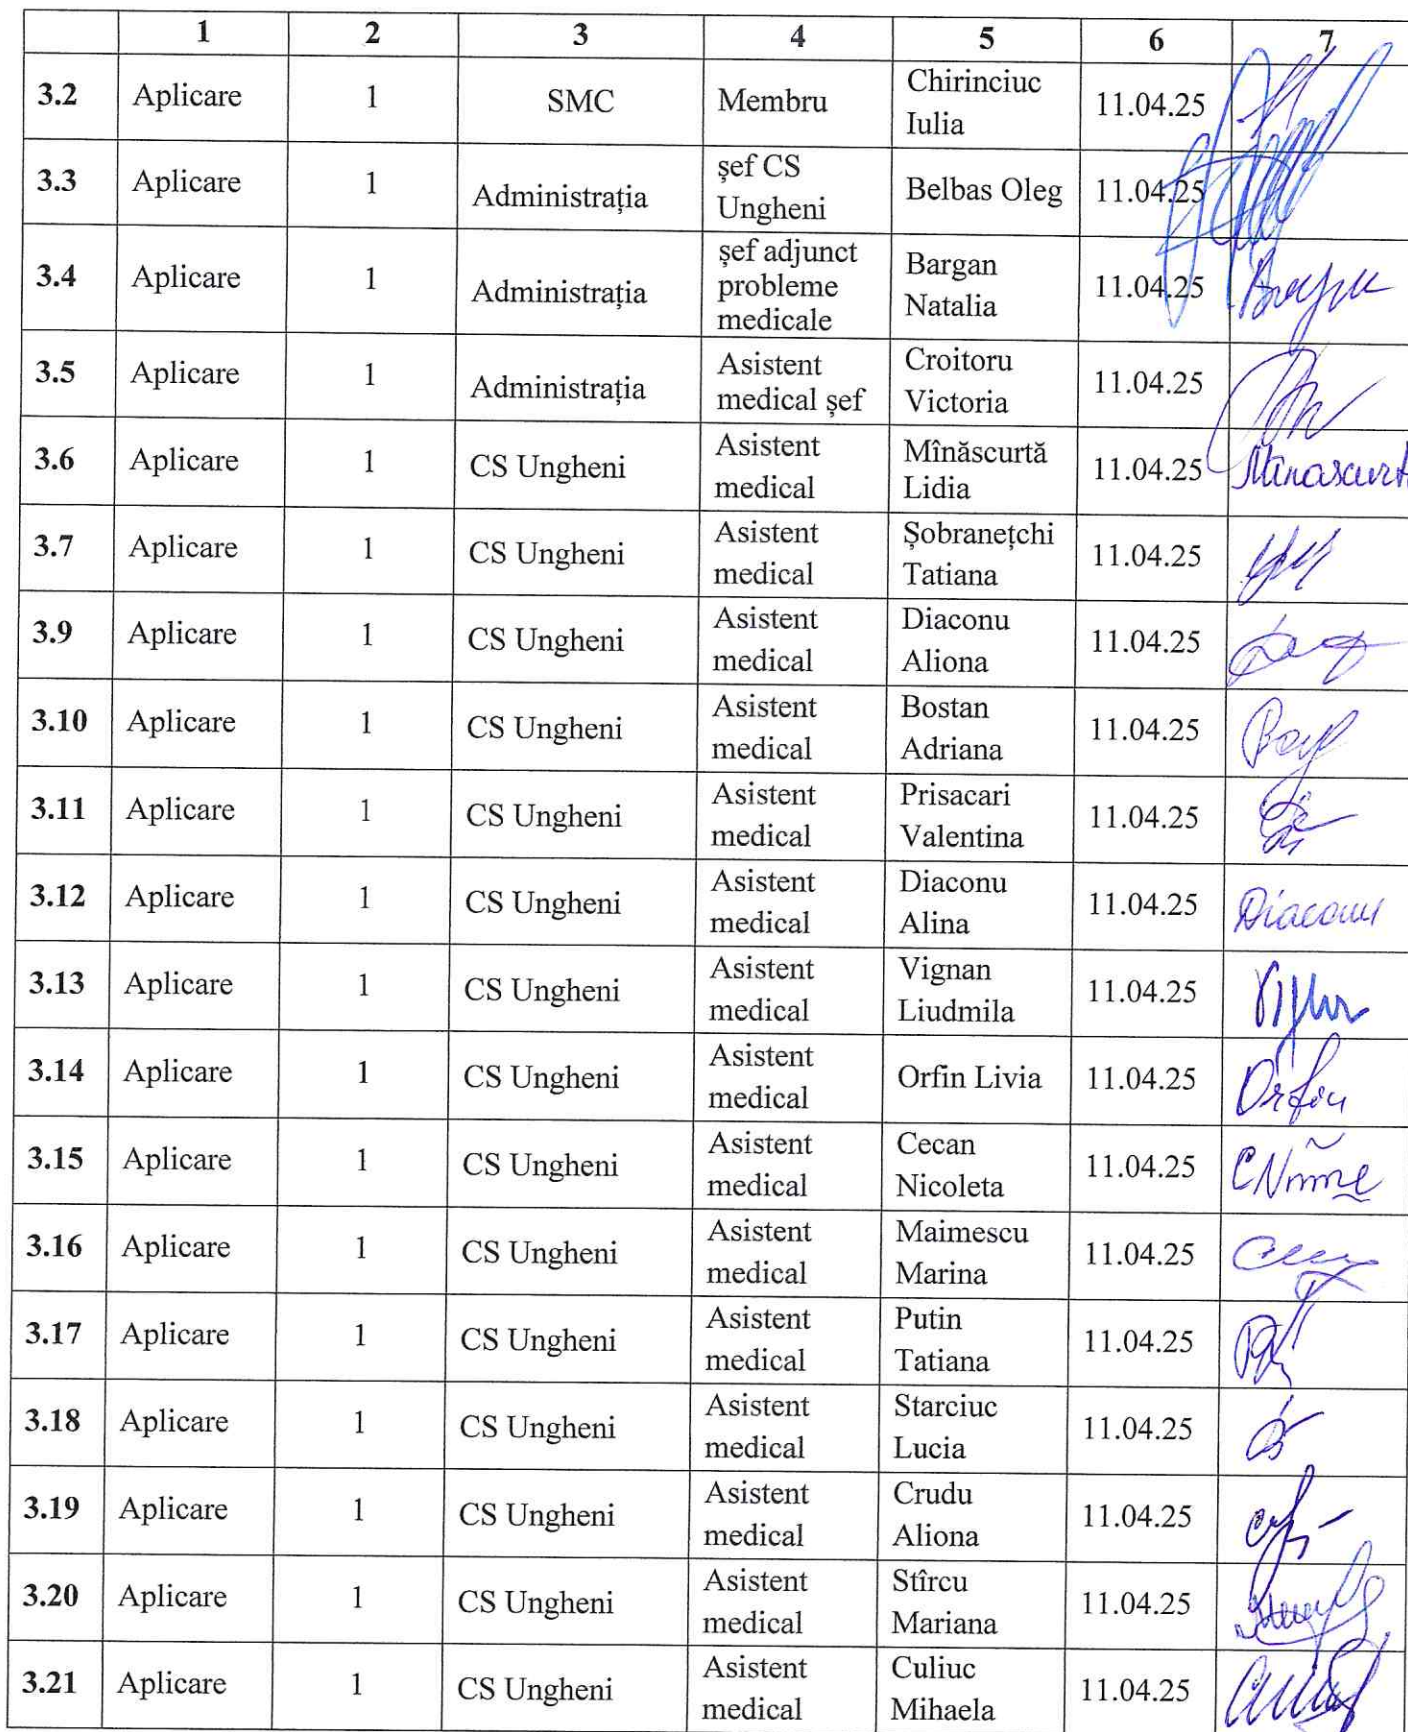 1 2 3 4 5 6 7
3.2 Aplicare 1 SMC Membru Chirinciuc Iulia 11.04.25
3.3 Aplicare 1 Administrația șef CS Ungheni Belbas Oleg 11.04.25
3.4 Aplicare 1 Administrația șef adjunct probleme medicale Bargan Natalia 11.04.25
3.5 Aplicare 1 Administrația Asistent medical șef Croitoru Victoria 11.04.25
3.6 Aplicare 1 CS Ungheni Asistent medical Mînăscurtă Lidia 11.04.25
3.7 Aplicare 1 CS Ungheni Asistent medical Șobranețchi Tatiana 11.04.25
3.9 Aplicare 1 CS Ungheni Asistent medical Diaconu Aliona 11.04.25
3.10 Aplicare 1 CS Ungheni Asistent medical Bostan Adriana 11.04.25
3.11 Aplicare 1 CS Ungheni Asistent medical Prisacari Valentina 11.04.25
3.12 Aplicare 1 CS Ungheni Asistent medical Diaconu Alina 11.04.25 Diaconu
3.13 Aplicare 1 CS Ungheni Asistent medical Vignan Liudmila 11.04.25
3.14 Aplicare 1 CS Ungheni Asistent medical Orfin Livia 11.04.25 Orfin
3.15 Aplicare 1 CS Ungheni Asistent medical Cecan Nicoleta 11.04.25
3.16 Aplicare 1 CS Ungheni Asistent medical Maimescu Marina 11.04.25
3.17 Aplicare 1 CS Ungheni Asistent medical Putin Tatiana 11.04.25
3.18 Aplicare 1 CS Ungheni Asistent medical Starciuc Lucia 11.04.25
3.19 Aplicare 1 CS Ungheni Asistent medical Crudu Aliona 11.04.25
3.20 Aplicare 1 CS Ungheni Asistent medical Stîrcu Mariana 11.04.25
3.21 Aplicare 1 CS Ungheni Asistent medical Culiuc Mihaela 11.04.25